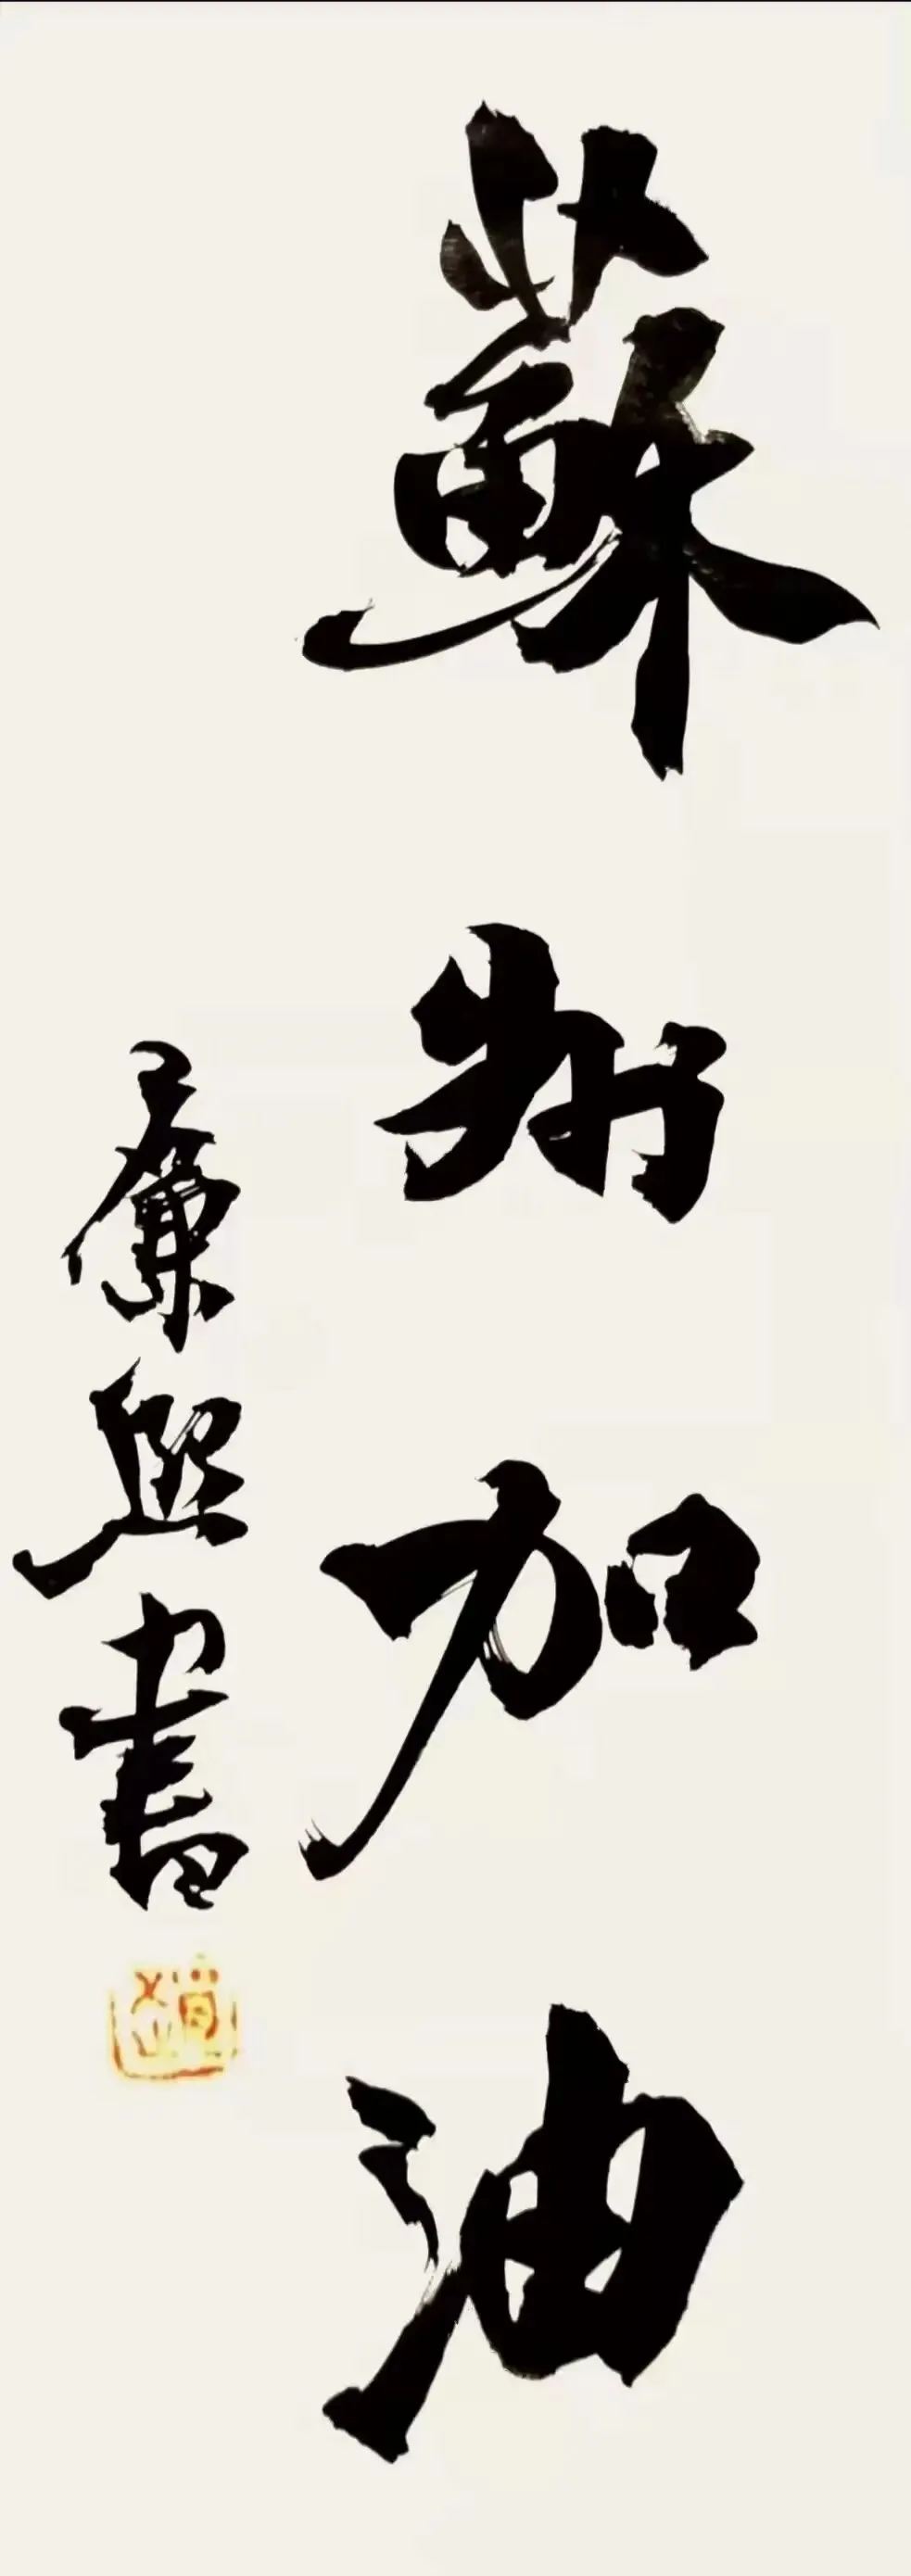 蘇州加油
廉熙書